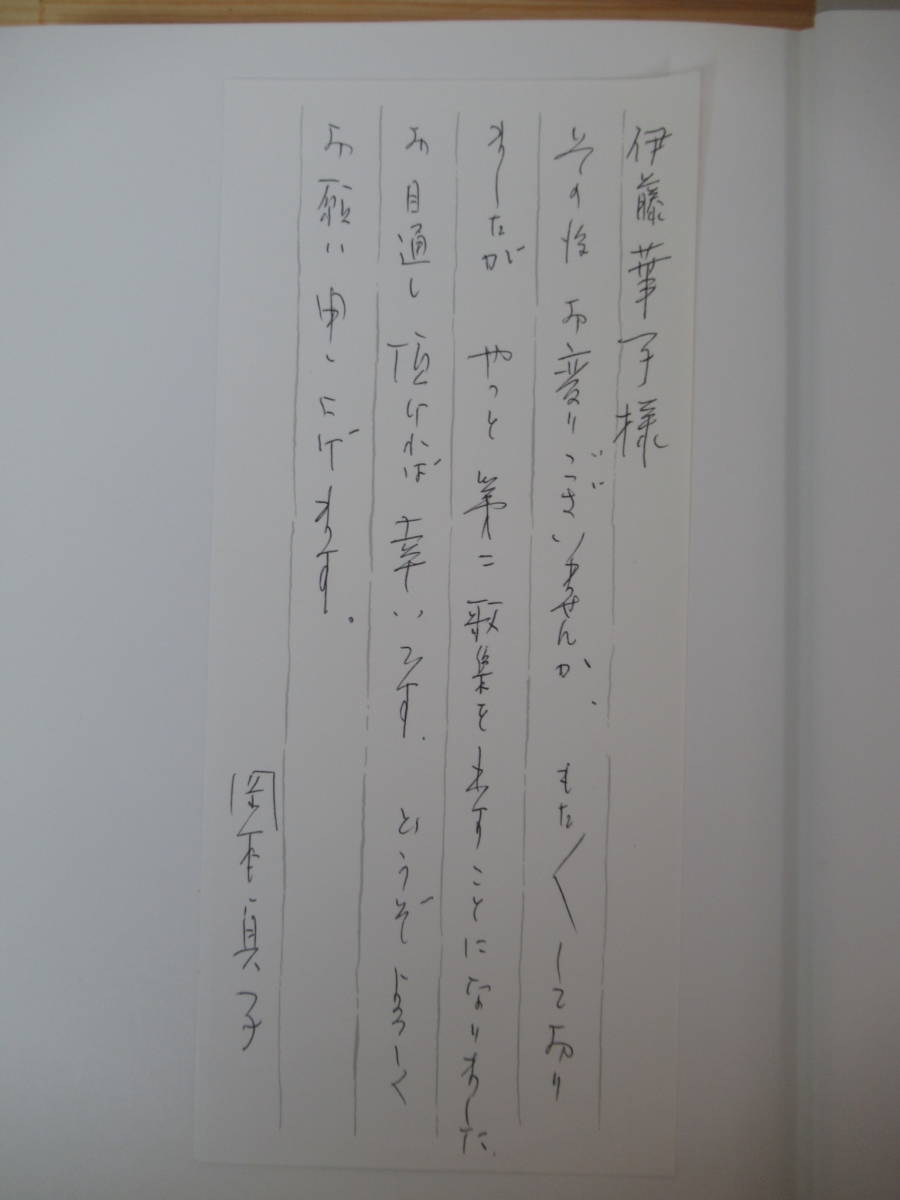 伊藤華子様
その後お変りございませんか、もたくしており
ましたが やっと第二歌集を出すことになりました。
お目通し頂ければ幸いです。どうぞよろしく
お願い申し上げます。
貞子